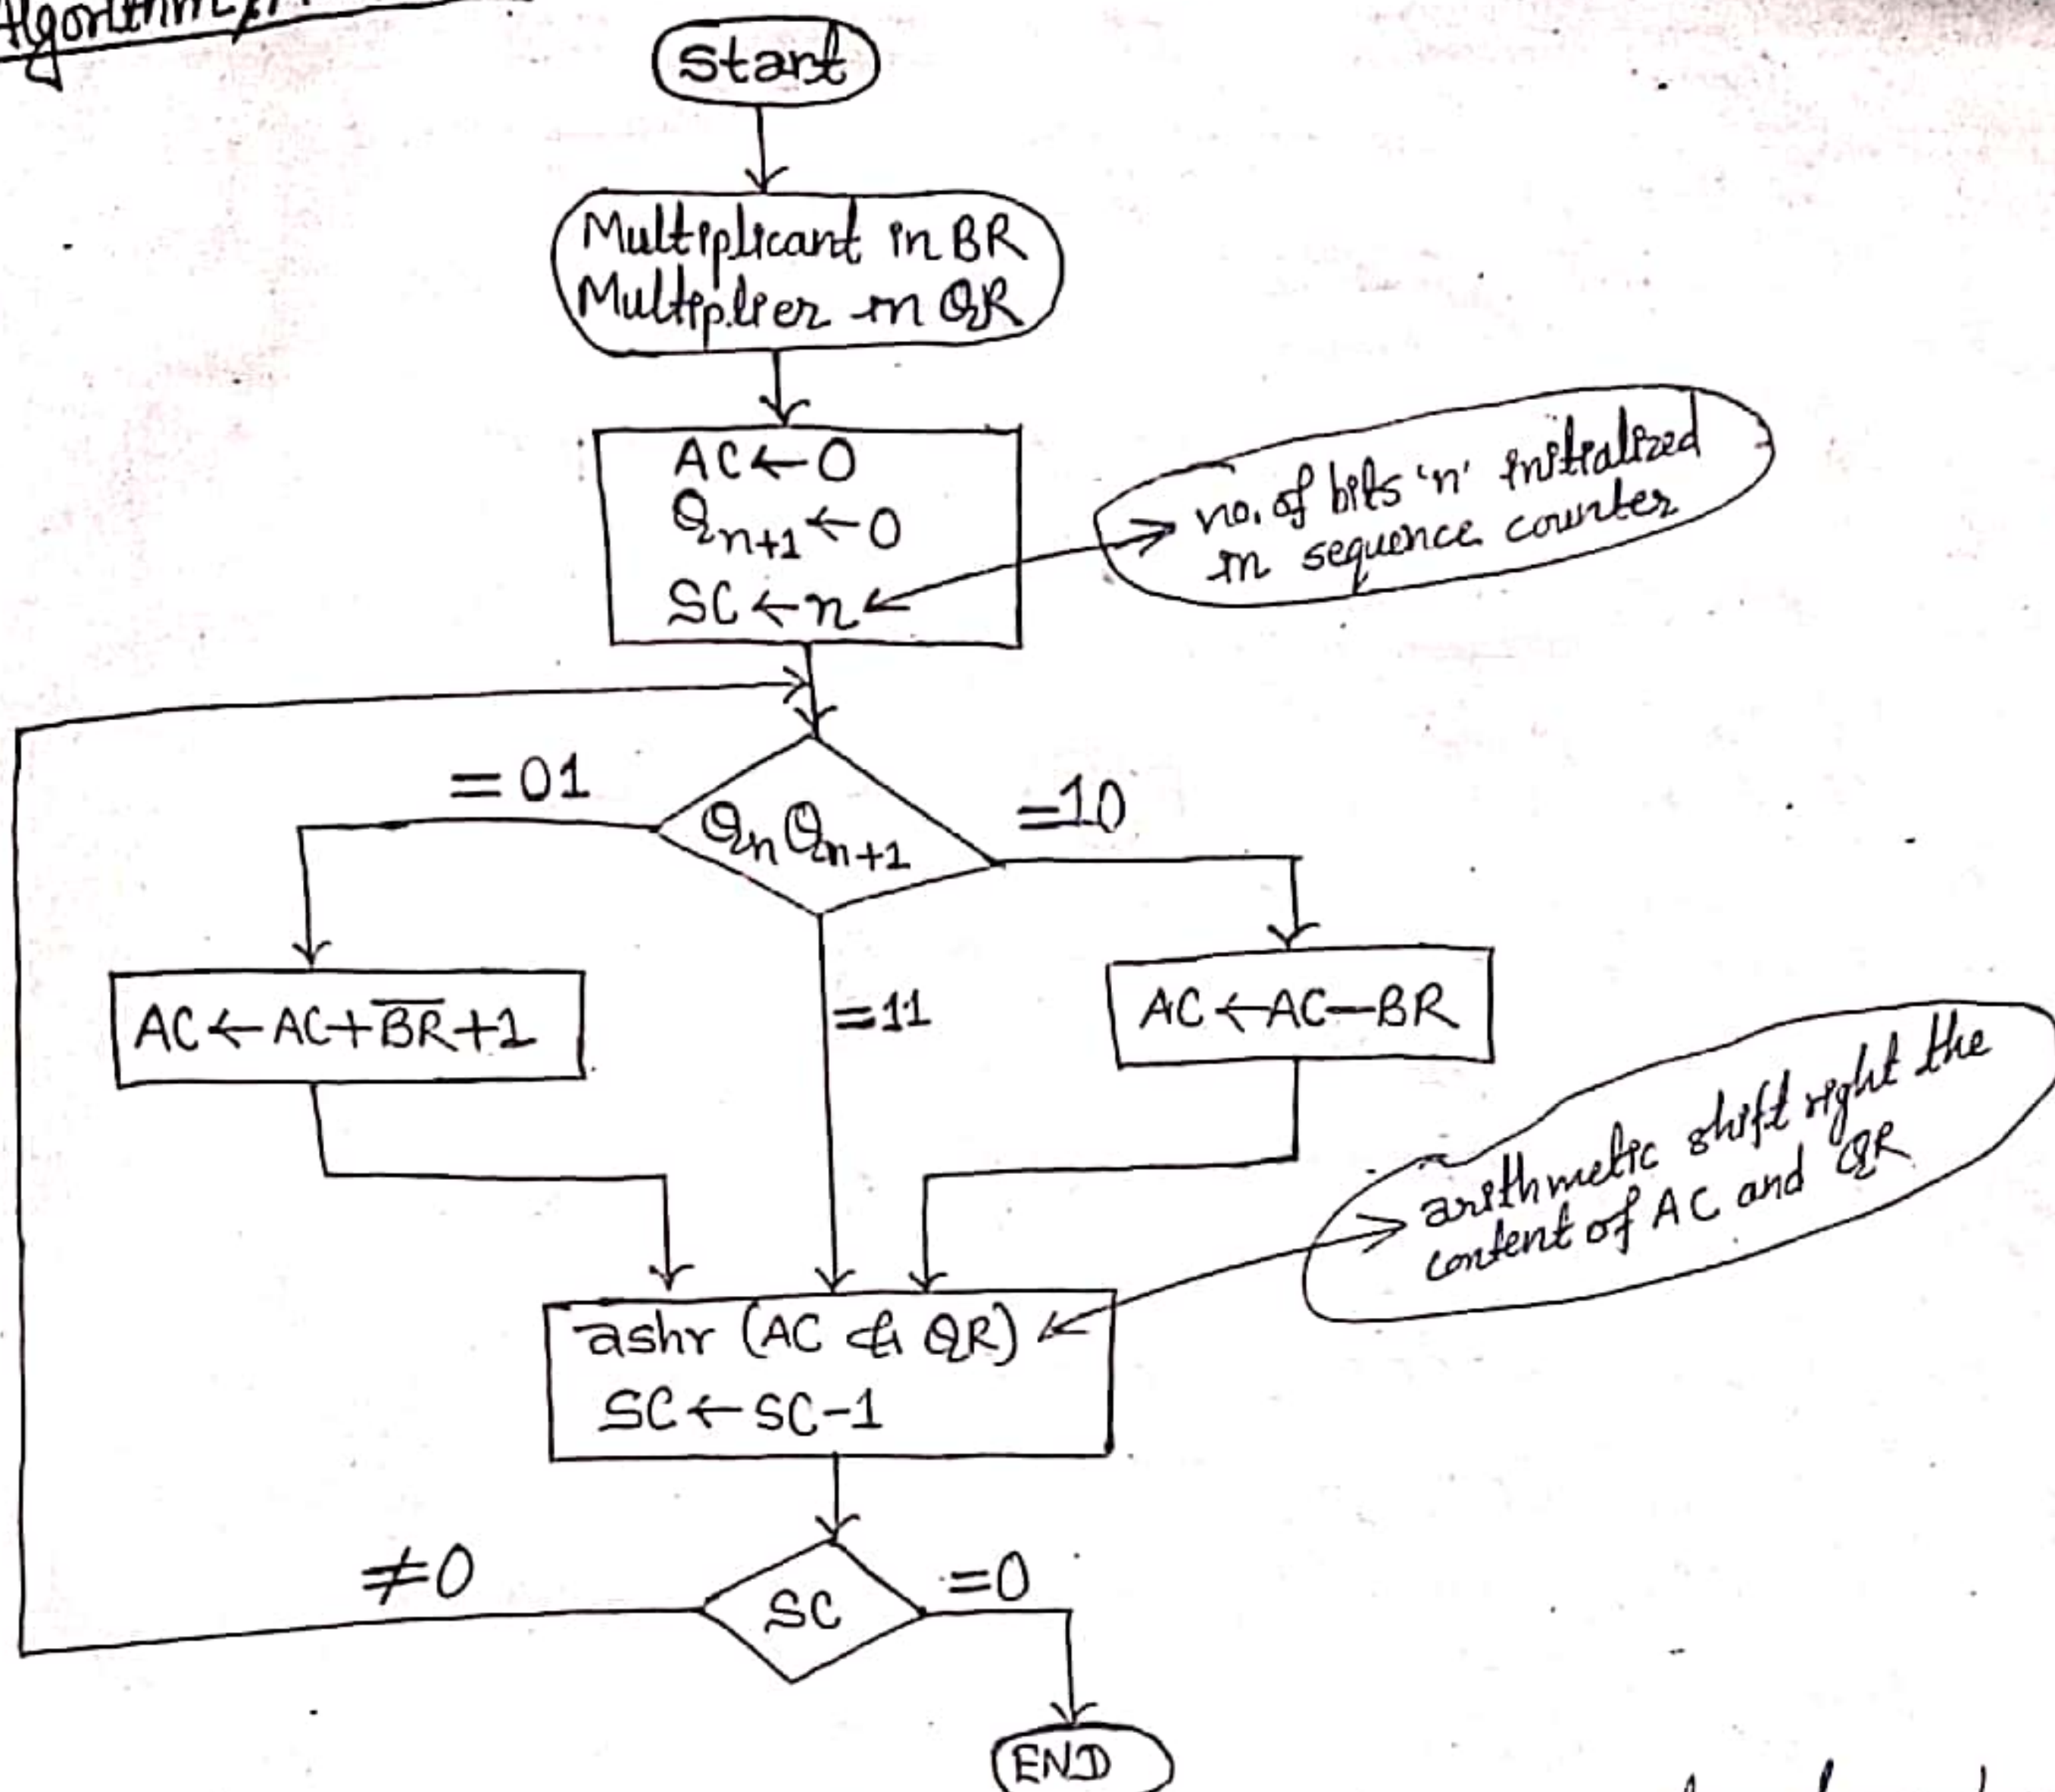 Algorithm
Start
Multiplicant in BR
Multiplier in QR
AC ← 0
Qn+1 ← 0
SC ← n
no. of bits 'n' initialized
in sequence counter
= 01
QnQn+1
=10
AC ← AC + \overline{BR} + 1
=11
AC ← AC − BR
arithmetic shift right the
content of AC and QR
ashr (AC & QR)
SC ← SC-1
≠0
SC
=0
END